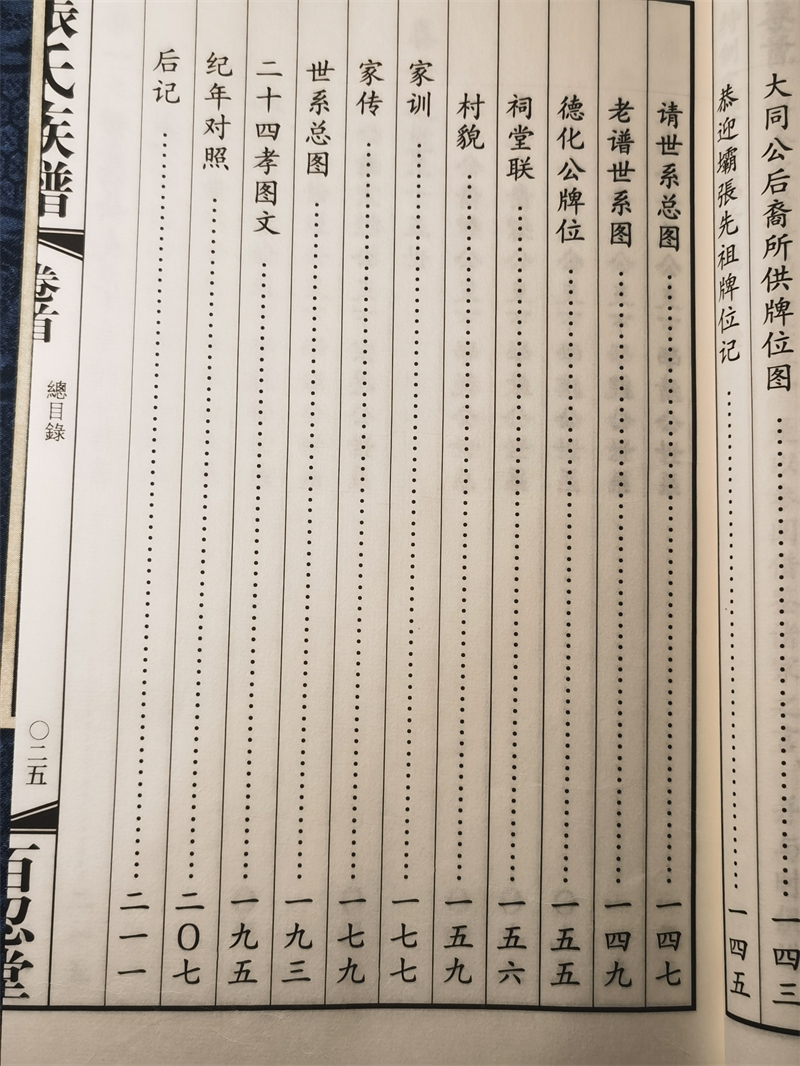 大同公后裔所供牌位图 一四三
恭迎壩張先祖牌位记 一四五
请世系总图 一四七
老谱世系图 一四九
德化公牌位 一五五
祠堂联 一五六
村貌 一五九
家训 一七七
家传 一七九
世系总图 一九三
二十四孝图文 一九五
纪年对照 二〇七
后记 二一一
張氏族譜
卷首
總目錄
〇二五
百忍堂